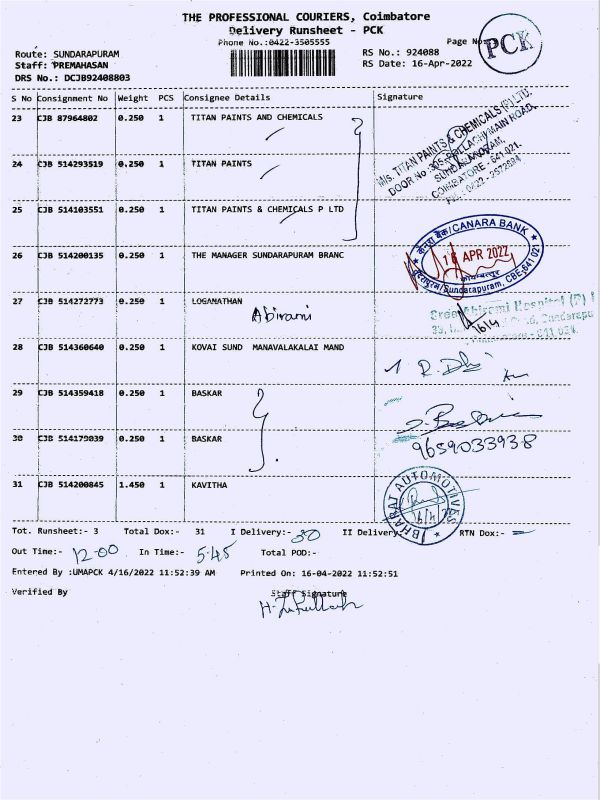 THE PROFESSIONAL COURIERS, Coimbatore
Delivery Runsheet - PCK
Phone No.:0422-3505555
Page No
PCK
Route: SUNDARAPURAM
RS No.: 924088
Staff: PREMAHASAN
RS Date: 16-Apr-2022
DRS No.: DCJB92408803
S No Consignment No Weight PCS Consignee Details Signature
23 CJB 87964802 0.250 1 TITAN PAINTS AND CHEMICALS
M/s. TITAN PAINTS & CHEMICALS (P) LTD.
DOOR No. 305, POLLACHI MAIN ROAD,
SUNDARAPURAM,
COIMBATORE - 641 021.
24 CJB 514293519 0.250 1 TITAN PAINTS
25 CJB 514103551 0.250 1 TITAN PAINTS & CHEMICALS P LTD
26 CJB 514200135 0.250 1 THE MANAGER SUNDARAPURAM BRANC
केनरा बैंक/CANARA BANK
16 APR 2022
Sundarapuram, CBE-641 021
27 CJB 514272773 0.250 1 LOGANATHAN
Abirami
Sree Abirami Hospital (P)
16/4
28 CJB 514360640 0.250 1 KOVAI SUND MANAVALAKALAI MAND
29 CJB 514359418 0.250 1 BASKAR
30 CJB 514179039 0.250 1 BASKAR
9659033938
31 CJB 514200845 1.450 1 KAVITHA
BHARAT AUTOMOTIVES
Tot. Runsheet:- 3 Total Dox:- 31 I Delivery:- 30 II Delivery:- RTN Dox:-
Out Time:- 12-00 In Time:- 5-45 Total POD:-
Entered By :UMAPCK 4/16/2022 11:52:39 AM Printed On: 16-04-2022 11:52:51
Verified By Staff Signature